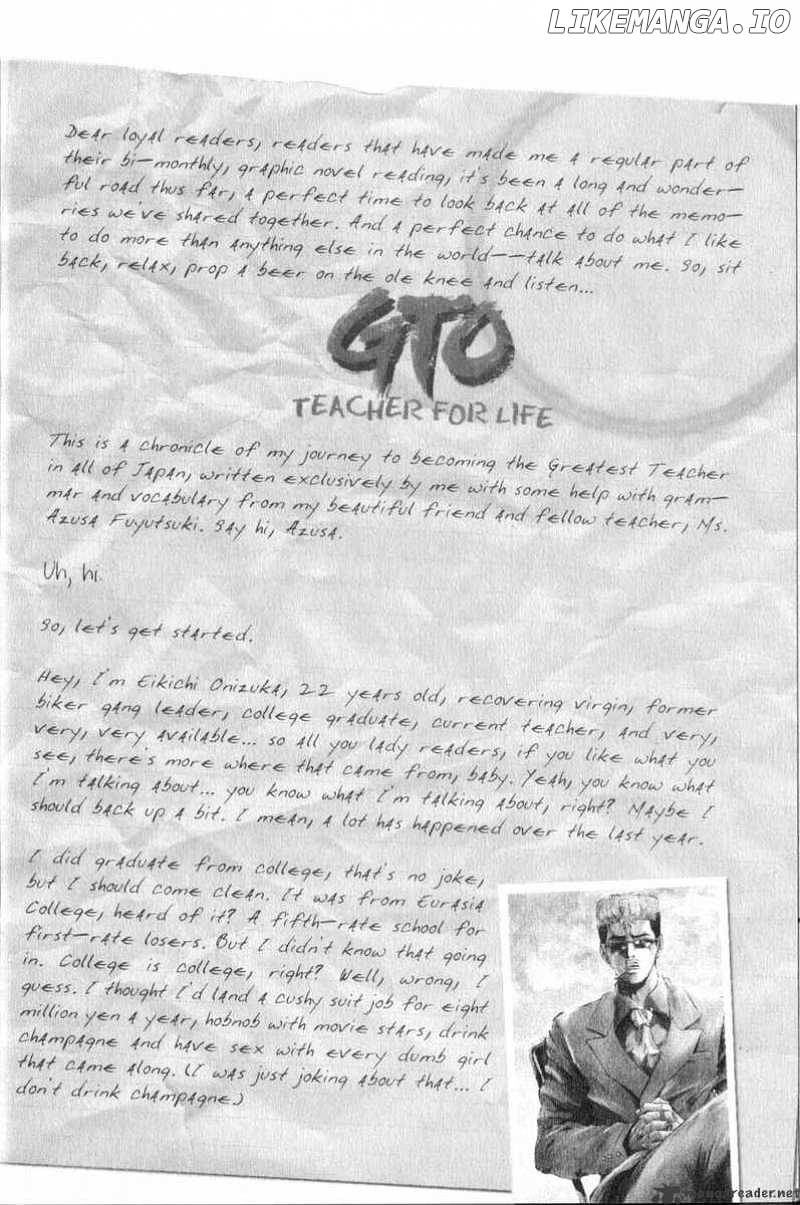 LIKEMANGA.IO
Dear loyal readers, readers that have made me a regular part of
their bi-monthly, graphic novel reading, it's been a long and wonder-
ful road thus far, a perfect time to look back at all of the memo-
ries we've shared together. And a perfect chance to do what I like
to do more than anything else in the world--talk about me. So, sit
back, relax, prop a beer on the ole knee and listen...
GTO
TEACHER FOR LIFE
This is a chronicle of my journey to becoming the Greatest Teacher
in all of Japan, written exclusively by me with some help with gram-
mar and vocabulary from my beautiful friend and fellow teacher, Ms.
Azusa Fuyutsuki. Say hi, Azusa.
Uh, hi.
So, let's get started.
Hey, I'm Eikichi Onizuka, 22 years old, recovering virgin, former
biker gang leader, college graduate, current teacher, and very,
very, very available... so all you lady readers, if you like what you
see, there's more where that came from, baby. Yeah, you know what
I'm talking about... you know what I'm talking about, right? Maybe I
should back up a bit. I mean, a lot has happened over the last year.
I did graduate from college, that's no joke,
but I should come clean. It was from Eurasia
College, heard of it? A fifth-rate school for
first-rate losers. But I didn't know that going
in. College is college, right? Well, wrong, I
guess. I thought I'd land a cushy suit job for eight
million yen a year, hobnob with movie stars, drink
champagne and have sex with every dumb girl
that came along. (I was just joking about that... I
don't drink champagne.)
reader.net